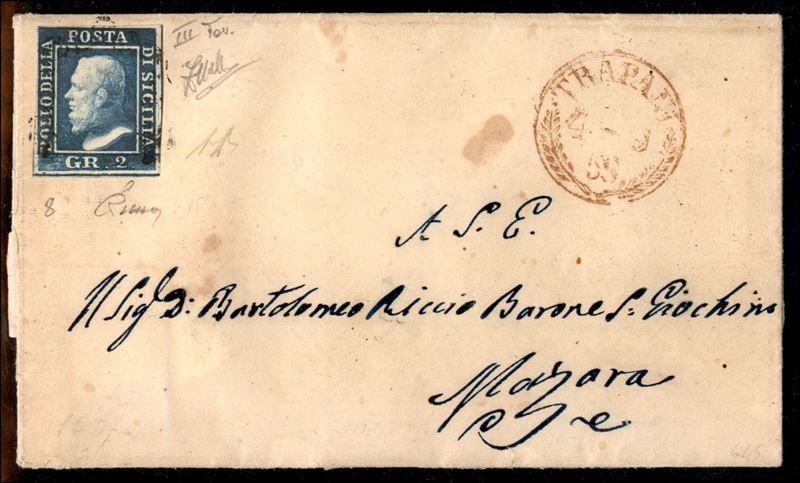 POSTA
BOLLO DELLA
DI SICILIA
GR. 2
III Tav.
TRAPANI
59
8
A S. E.
Il Sig D: Bartolomeo Riccio Barone S. Giochino
Mazara
645